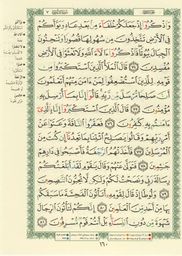 وَٱذْكُرُوٓا۟ إِذْ جَعَلَكُمْ خُلَفَآءَ مِنۢ بَعْدِ عَادٍ وَبَوَّأَكُمْ
فِى ٱلْأَرْضِ تَتَّخِذُونَ مِن سُهُولِهَا قُصُورًا وَتَنْحِتُونَ
ٱلْجِبَالَ بُيُوتًا فَٱذْكُرُوٓا۟ ءَالَآءَ ٱللَّهِ وَلَا تَعْثَوْا۟ فِى ٱلْأَرْضِ
مُفْسِدِينَ ٧٤ قَالَ ٱلْمَلَأُ ٱلَّذِينَ ٱسْتَكْبَرُوا۟ مِن
قَوْمِهِۦ لِلَّذِينَ ٱسْتُضْعِفُوا۟ لِمَنْ ءَامَنَ مِنْهُمْ أَتَعْلَمُونَ
أَنَّ صَٰلِحًا مُّرْسَلٌ مِّن رَّبِّهِۦ قَالُوٓا۟ إِنَّا بِمَآ أُرْسِلَ بِهِۦ
مُؤْمِنُونَ ٧٥ قَالَ ٱلَّذِينَ ٱسْتَكْبَرُوٓا۟ إِنَّا بِٱلَّذِىٓ
ءَامَنتُم بِهِۦ كَٰفِرُونَ ٧٦ فَعَقَرُوا۟ ٱلنَّاقَةَ وَعَتَوْا۟ عَنْ
أَمْرِ رَبِّهِمْ وَقَالُوا۟ يَٰصَٰلِحُ ٱئْتِنَا بِمَا تَعِدُنَآ إِن كُنتَ مِنَ
ٱلْمُرْسَلِينَ ٧٧ فَأَخَذَتْهُمُ ٱلرَّجْفَةُ فَأَصْبَحُوا۟ فِى دَارِهِمْ
جَٰثِمِينَ ٧٨ فَتَوَلَّىٰ عَنْهُمْ وَقَالَ يَٰقَوْمِ لَقَدْ أَبْلَغْتُكُمْ
رِسَالَةَ رَبِّى وَنَصَحْتُ لَكُمْ وَلَٰكِن لَّا تُحِبُّونَ ٱلنَّٰصِحِينَ
٧٩ وَلُوطًا إِذْ قَالَ لِقَوْمِهِۦٓ أَتَأْتُونَ ٱلْفَٰحِشَةَ مَا سَبَقَكُم
بِهَا مِنْ أَحَدٍ مِّنَ ٱلْعَٰلَمِينَ ٨٠ إِنَّكُمْ لَتَأْتُونَ ٱلرِّجَالَ
شَهْوَةً مِّن دُونِ ٱلنِّسَآءِ بَلْ أَنتُمْ قَوْمٌ مُّسْرِفُونَ ٨١
١٦٠